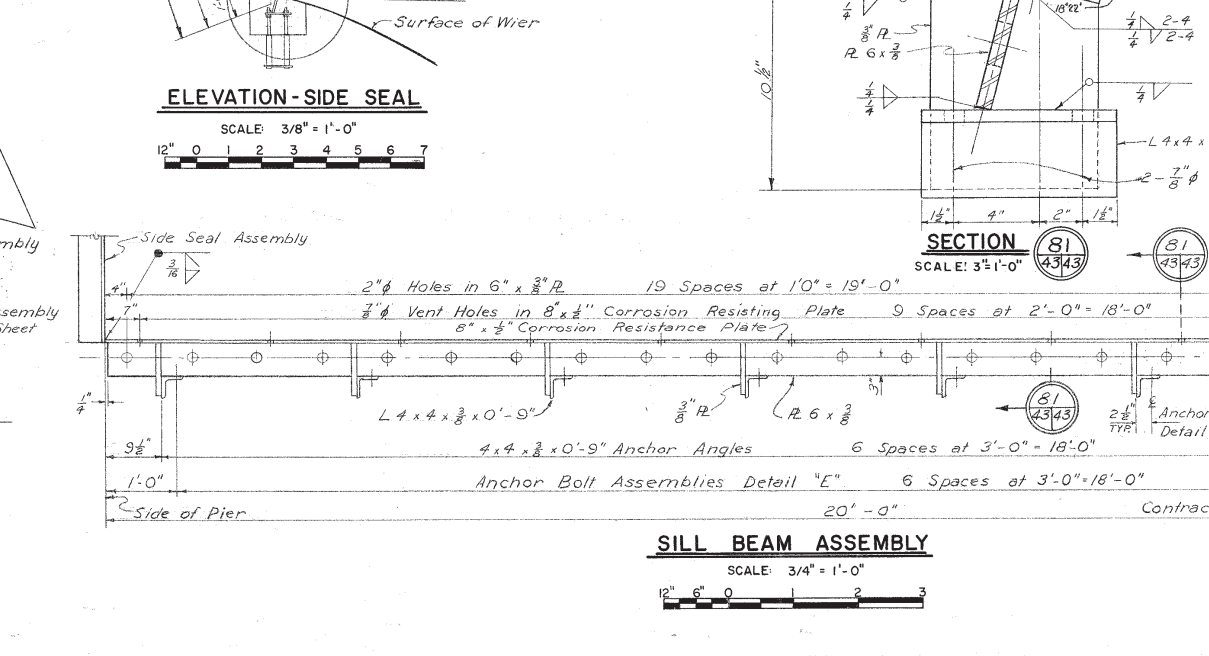 Surface of Wier
ELEVATION-SIDE SEAL
SCALE: 3/8" = 1'-0"
12" 0 1 2 3 4 5 6 7
1/4
3/8" PL
PL 6 x 3/8
1/4
1/4
10 1/2"
18°22'
1/4 2-4
1/4 2-4
1/4
L 4 x 4 x
2 - 7/8" ϕ
1 1/2" 4" 2" 1 1/2"
SECTION 81
43 43
SCALE: 3"=1'-0"
81
43 43
mbly
Side Seal Assembly
3/16
4" 2"ϕ Holes in 6" x 3/8" PL 19 Spaces at 1'0" = 19'-0"
sembly
Sheet
7" 7/8"ϕ Vent Holes in 8" x 1/2" Corrosion Resisting Plate 9 Spaces at 2'-0" = 18'-0"
8" x 1/2" Corrosion Resistance Plate
3"
1/4"
L 4 x 4 x 3/8 x 0'-9"
3/8" PL
PL 6 x 3/8
81
43 43
2 1/2"
TYP.
Anchor
Detail
9 1/2" 4 x 4 x 3/8 x 0'-9" Anchor Angles 6 Spaces at 3'-0" = 18'-0"
1'-0" Anchor Bolt Assemblies Detail "E" 6 Spaces at 3'-0"=18'-0"
Side of Pier
20' - 0"
Contrac
SILL BEAM ASSEMBLY
SCALE: 3/4" = 1'-0"
12" 6" 0 1 2 3